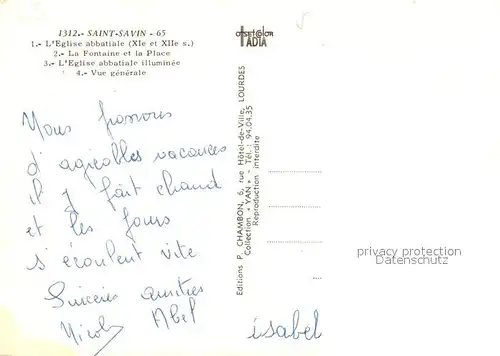 1312.- SAINT-SAVIN - 65
1.- L'Eglise abbatiale (XIe et XIIe s.)
2.- La Fontaine et la Place
3.- L'Eglise abbatiale illuminée
4.- Vue générale
Nous passons
d'agréables vacances
il y fait chaud
et les jours
s'écoulent vite
Sincères amitiés
Nicole Abel
isabel
offset color
IADIA
Editions P. CHAMBON, 6, rue Hôtel-de-Ville, LOURDES
Collection « YAN » - Tél. : 94.04.35
Reproduction interdite
privacy protection
Datenschutz